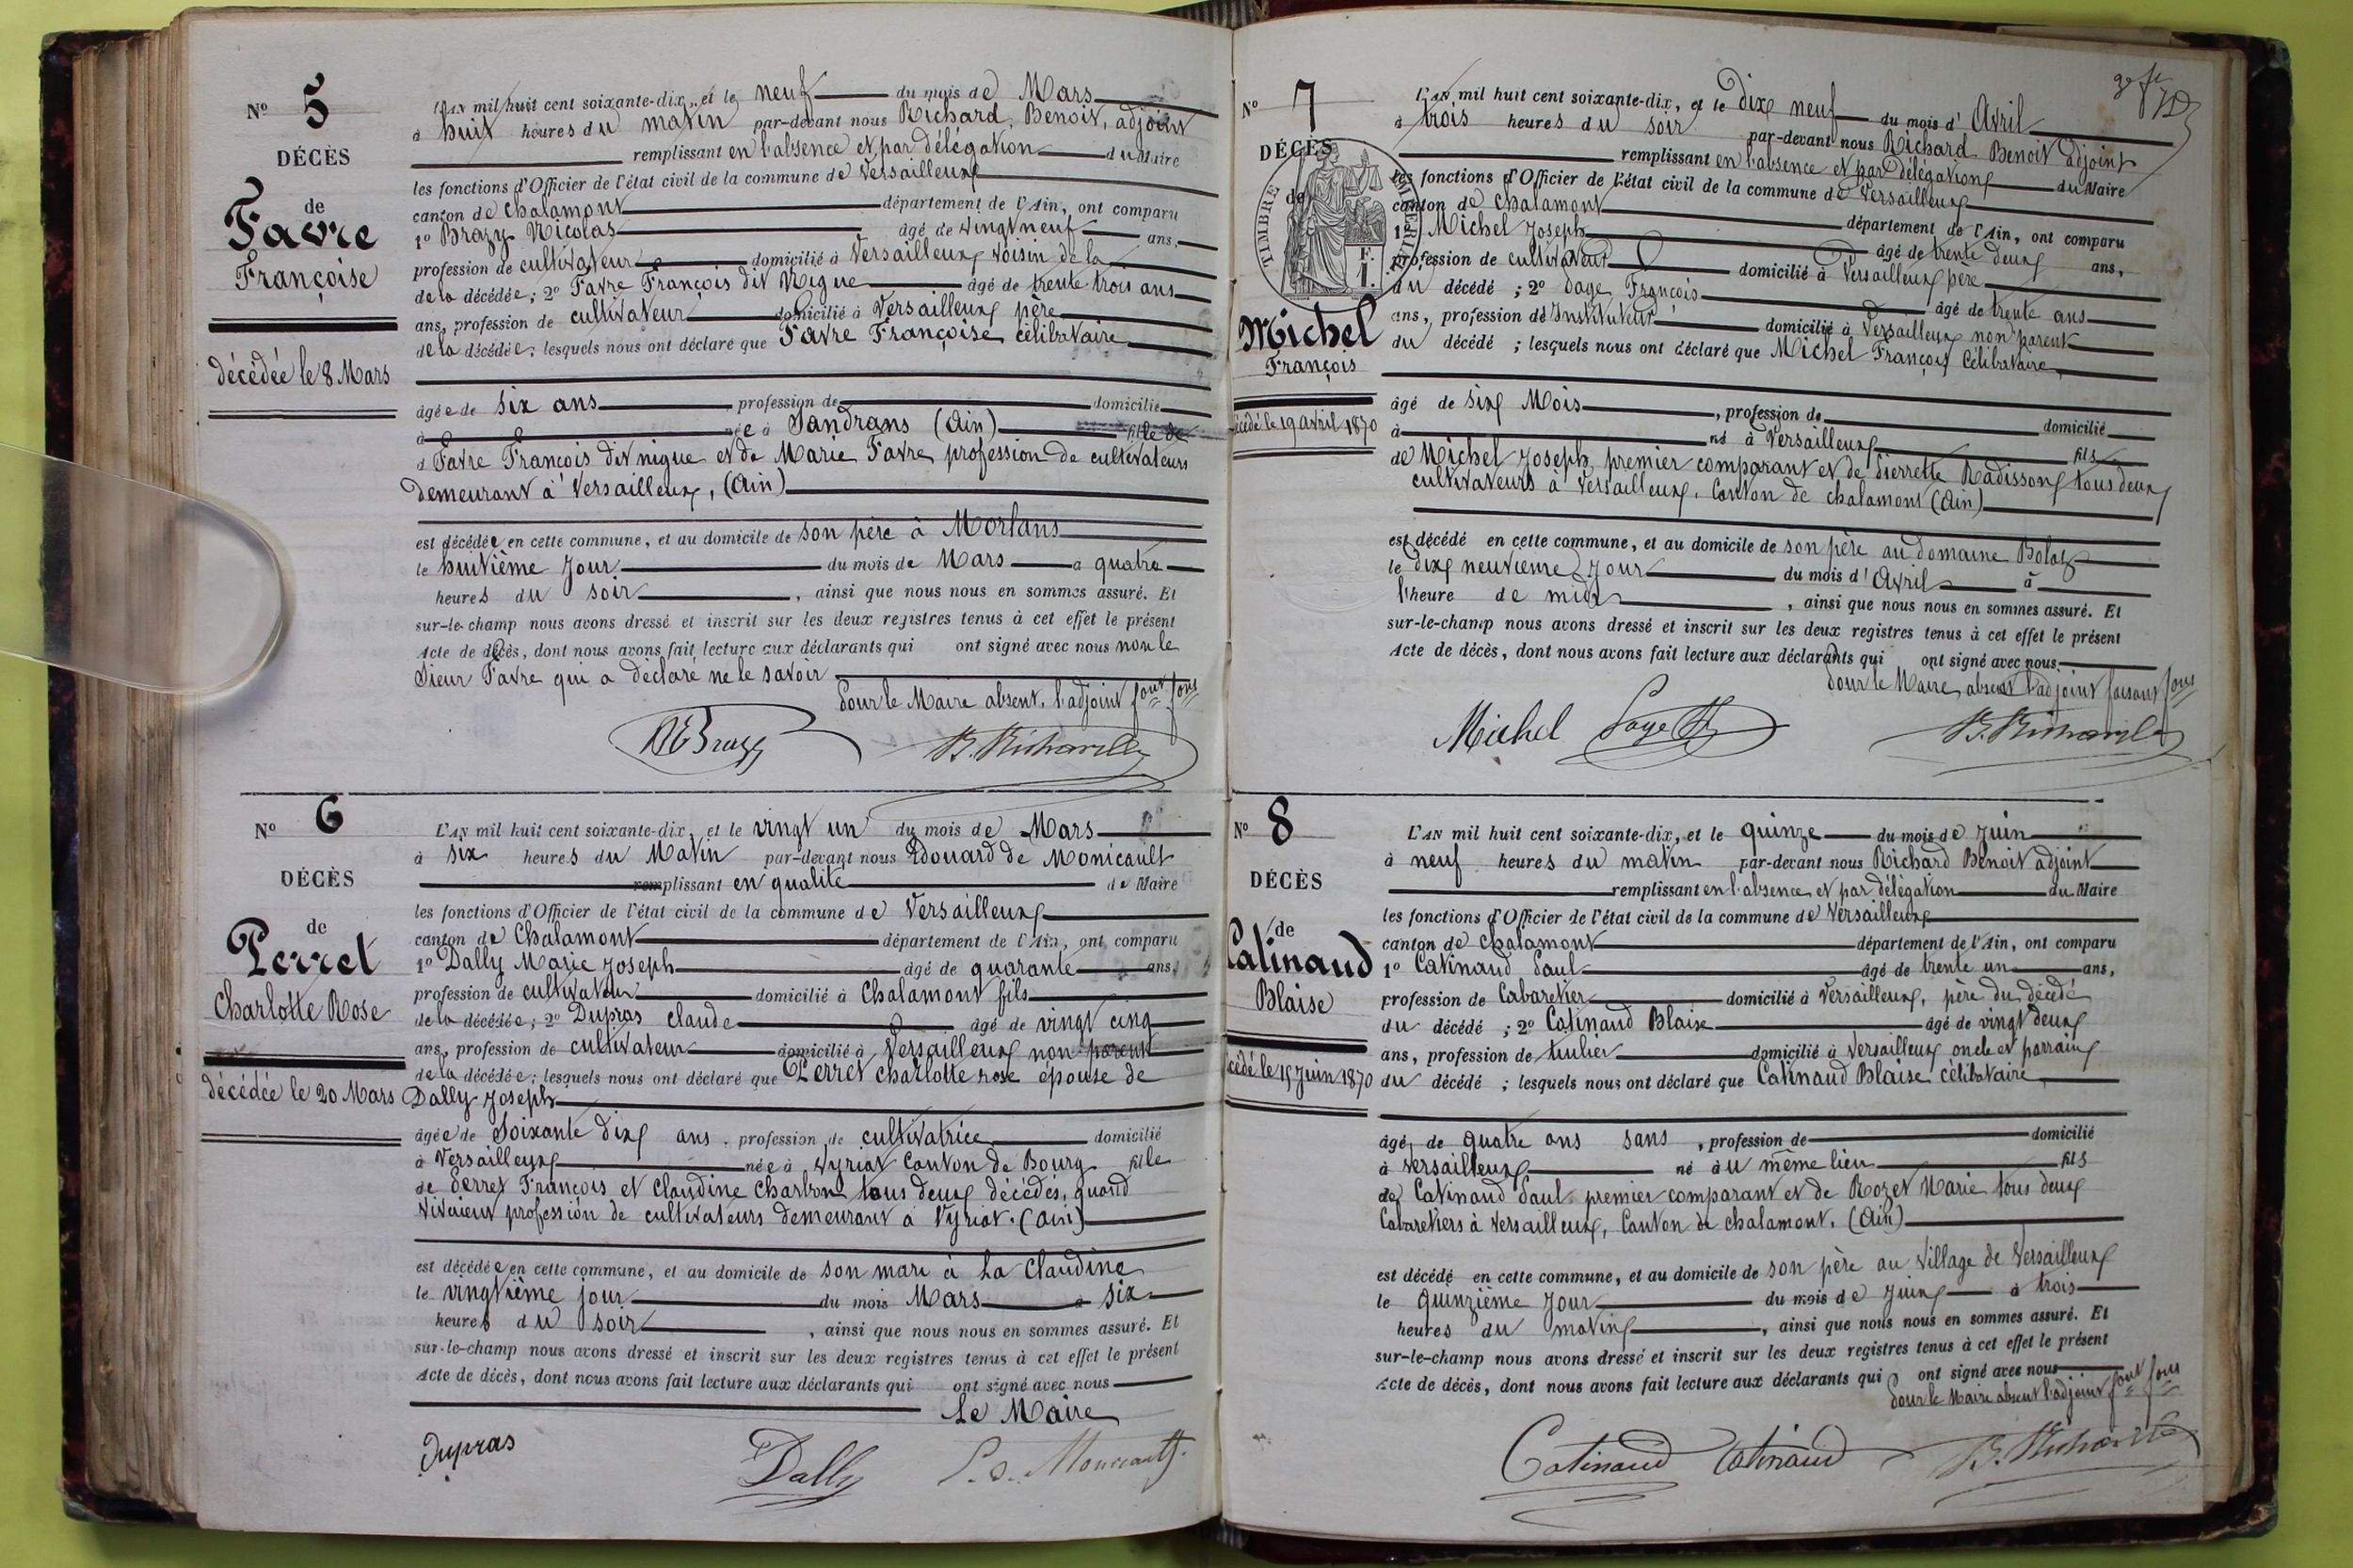 N° 5
DÉCÈS
de
Favre
Françoise
décédée le 8 Mars
L'AN mil huit cent soixante-dix, et le neuf du mois de Mars
à huit heures du matin par-devant nous Richard, Benoit, adjoint
remplissant en l'absence et par délégation du Maire
les fonctions d'Officier de l'état civil de la commune de Versailleux
canton de Chalamont département de l'Ain, ont comparu
1° Brazy Nicolas âgé de vingt neuf ans,
profession de cultivateur domicilié à Versailleux voisin de la
de la décédée; 2° Favre François dit Nigue âgé de trente trois ans
ans, profession de cultivateur domicilié à Versailleux père
de la décédée; lesquels nous ont déclaré que Favre Françoise célibataire
âgée de six ans profession de domicilié
à née à Sandrans (Ain) fille de
d Favre François dit nigue et de Marie Favre profession de cultivateurs
demeurant à Versailleux, (Ain)
est décédée en cette commune, et au domicile de son père à Morlans
le huitième jour du mois de Mars à quatre
heures du soir, ainsi que nous nous en sommes assuré. Et
sur-le-champ nous avons dressé et inscrit sur les deux registres tenus à cet effet le présent
Acte de décès, dont nous avons fait lecture aux déclarants qui ont signé avec nous non le
Sieur Favre qui a déclaré ne le savoir
Pour le Maire absent, l'adjoint
Brazy B. Richard
N° 6
DÉCÈS
de
Perret
Charlotte Rose
décédée le 20 Mars
L'AN mil huit cent soixante-dix, et le vingt un du mois de Mars
à six heures du Matin par-devant nous Edouard de Monicault
remplissant en qualité de Maire
les fonctions d'Officier de l'état civil de la commune de Versailleux
canton de Chalamont département de l'Ain, ont comparu
1° Dally Marie Joseph âgé de quarante ans,
profession de cultivateur domicilié à Chalamont fils
de la décédée; 2° Dupras Claude âgé de vingt cinq
ans, profession de cultivateur domicilié à Versailleux non parent
de la décédée; lesquels nous ont déclaré que Perret Charlotte rose épouse de
Dally Joseph
âgée de Soixante dix ans, profession de cultivatrice domicilié
à Versailleux née à Vyriat Canton de Bourg fille
de Perret François et Claudine Charbon tous deux décédés, quand
vivaient profession de cultivateurs demeurant à Vyriat. (Ain)
est décédée en cette commune, et au domicile de son mari à La Claudine
le vingtième jour du mois Mars à six
heures du soir, ainsi que nous nous en sommes assuré. Et
sur-le-champ nous avons dressé et inscrit sur les deux registres tenus à cet effet le présent
Acte de décès, dont nous avons fait lecture aux déclarants qui ont signé avec nous
Le Maire
Dupras Dally E. de Monicault
N° 7
DÉCÈS
de
TIMBRE IMPÉRIAL
F.
1.
Michel
François
décédé le 19 avril 1870
L'AN mil huit cent soixante-dix, et le dix neuf du mois d'Avril
à trois heures du soir par-devant nous Richard Benoit adjoint
remplissant en l'absence et par délégation du Maire
les fonctions d'Officier de l'état civil de la commune de Versailleux
canton de Chalamont département de l'Ain, ont comparu
1° Michel Joseph âgé de trente deux ans,
profession de cultivateur domicilié à Versailleux père
du décédé; 2° Page François âgé de trente ans
ans, profession de Instituteur domicilié à Versailleux non parent
du décédé; lesquels nous ont déclaré que Michel François Célibataire
âgé de six Mois, profession de domicilié
à né à Versailleux fils
de Michel Joseph, premier comparant et de Pierrette Radisson tous deux
cultivateurs à Versailleux, Canton de Chalamont (Ain)
est décédé en cette commune, et au domicile de son père au domaine Bolat
le dix neuvième jour du mois d'Avril à
l'heure de midi, ainsi que nous nous en sommes assuré. Et
sur-le-champ nous avons dressé et inscrit sur les deux registres tenus à cet effet le présent
Acte de décès, dont nous avons fait lecture aux déclarants qui ont signé avec nous
Pour le Maire absent l'adjoint faisant
Michel Page B. Richard
N° 8
DÉCÈS
de
Catinaud
Blaise
décédé le 15 Juin 1870
L'AN mil huit cent soixante-dix, et le quinze du mois de Juin
à neuf heures du matin par-devant nous Richard Benoit adjoint
remplissant en l'absence et par délégation du Maire
les fonctions d'Officier de l'état civil de la commune de Versailleux
canton de Chalamont département de l'Ain, ont comparu
1° Catinaud Paul âgé de trente un ans,
profession de Cabaretier domicilié à Versailleux, père du décédé
du décédé; 2° Catinaud Blaise âgé de vingt deux
ans, profession de tuilier domicilié à Versailleux oncle et parrain
du décédé; lesquels nous ont déclaré que Catinaud Blaise célibataire
âgé de quatre ans sans, profession de domicilié
à Versailleux né au même lieu fils
de Catinaud Paul premier comparant et de Rozet Marie tous deux
Cabaretiers à Versailleux, Canton de Chalamont. (Ain)
est décédé en cette commune, et au domicile de son père au village de Versailleux
le quinzième jour du mois de juin à trois
heures du matin, ainsi que nous nous en sommes assuré. Et
sur-le-champ nous avons dressé et inscrit sur les deux registres tenus à cet effet le présent
Acte de décès, dont nous avons fait lecture aux déclarants qui ont signé avec nous
Pour le Maire absent l'adjoint
Catinaud Catinaud B. Richard